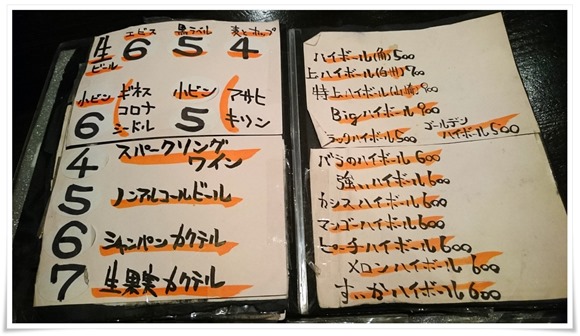 生ビール
エビス 黒ラベル 麦とホップ
6 5 4
小ビン ギネス 小ビン アサヒ
コロナ キリン
6 シードル 5
4 スパークリング
ワイン
5 ノンアルコールビール
6 シャンパンカクテル
7 生果実カクテル
ハイボール(角)500
上ハイボール(白州)900
特上ハイボール(山崎)900
Bigハイボール900
ブラックハイボール500
ゴールデン
ハイボール500
バラのハイボール600
強いハイボール600
カシスハイボール600
マンゴーハイボール600
ピーチハイボール600
メロンハイボール600
すいかハイボール600